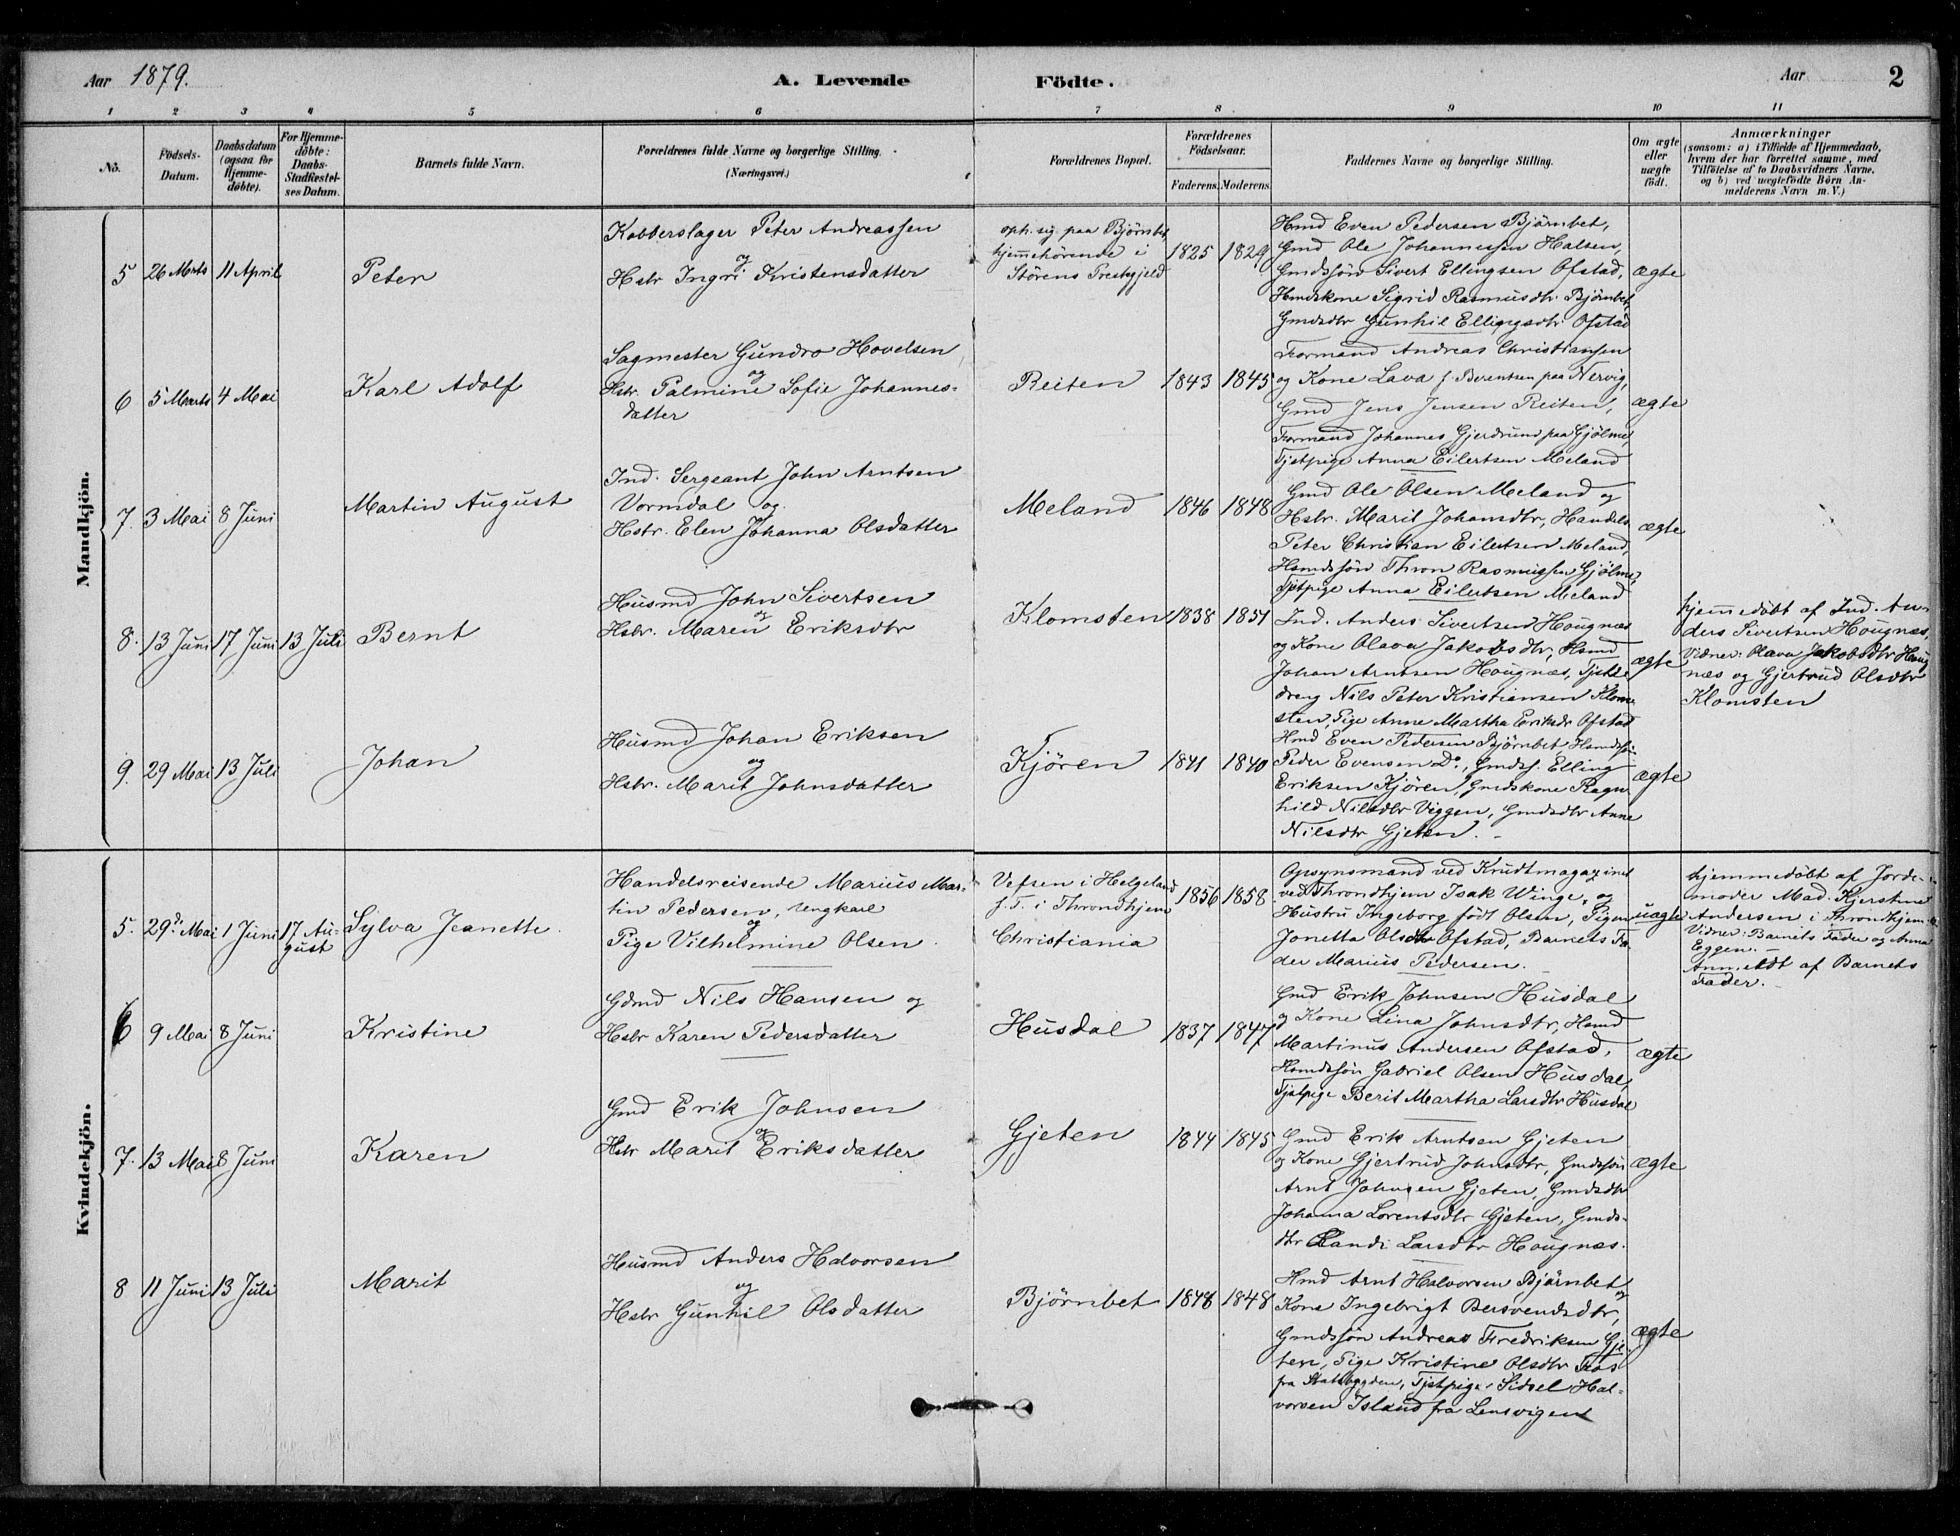 Aar 1879. A. Levende Födte. Aar 2
1 2 3 4 5 6 7 8 9 10 11
No.
Födsels-Datum.
Daabsdatum (ogsaa for Hjemmedöbte).
For Hjemmedöbte: Daabs-Stadfæstelses Datum.
Barnets fulde Navn.
Forældrenes fulde Navne og borgerlige Stilling. (Næringsvei.)
Forældrenes Bopæl.
Forældrenes Födselsaar.
Faderens. Moderens.
Faddernes Navne og borgerlige Stilling.
Om ægte eller uægte födt.
Anmærkninger
(saasom: a) i Tilfælde af Hjemmedaab,
hvem der har forrettet samme, med
Tilföielse af to Daabsvidners Navne,
og b) ved uægtefödte Börn An-
melderens Navn m. V.)
Mandkjön.
5 26 Marts 11 April Peter
Kobberslager Peter Andreassen
og
Hstr Ingri Kristensdatter
oph. sig paa Bjørnbet,
hjemmehörende i
Störens Prestegjeld
1825 1829
Hmd Even Pedersen Björnbet,
Gmd Ole Johannessen Halsen,
Gmdssön Sivert Ellingsen Ofstad,
Hmdskone Sigrid Rasmusdtr Björnbet,
Gmdsdtr Gunhil Ellingsdtr Ofstad
ægte
6 5 Marts 4 Mai Karl Adolf
Sagmester Gundro Hovelsen
og
Hstr. Palmine Sofie Johannes-
datter
Reiten 1843 1845
Formand Andreas Christiansen
og Kone Lava f. Berentsen paa Nervig,
Gmd Jens Jensen Reiten,
Formand Johannes Gjerdrund paa Gjölme,
Tjstpige Anna Eilertsen Meland
ægte
7. 3 Mai 8 Juni Martin August
Ind. Sergeant John Arntsen
Vormdal og
Hstr. Elen Johanna Olsdatter
Meland 1846 1848
Gmd Ole Olsen Meland og
Hstr. Marit Johansdtr, Handels.
Peter Christian Eilertsen Meland,
Hsmdssön Thron Rasmussen Gjölme,
Tjstpige Anna Eilertsen Meland
ægte
8. 13 Juni 17 Juni 13 Juli Bernt
Husmd John Sivertsen
og
Hstr. Maren Eriksdtr
Klomsten 1838 1851
Ind. Anders Sivertsen Hougnæs
og Kone Olava Jakobsdtr, Hsmd
Johan Arntsen Hougnæs, Tjste
dreng Nils Peter Kristiansen Klom-
sten, Pige Anne Martha Eriksdr Ofstad
ægte
hjemmedöbt af Ind. An-
ders Sivertsen Hougnæs,
Vidner: Olava Jakobsdtr Houg
næs og Gjertrud Olsdtr
Klomsten
9. 29 Mai 13 Juli Johan
Husmd Johan Eriksen
og
Hstr. Marit Johnsdatter
Kjören 1841 1840
Hmd Even Pedersen Björnbet, Hsmdssön
Peder Evensen Do., Gmdss. Elling
Eriksen Kjören, Gmdskone Ragn-
hild Nilsdtr Viggen, Gmdsdtr Anne
Nilsdtr Gjeten.
ægte
Kvindekjön.
5. 29de Mai 1 Juni 17 Au-
gust Sylva Jeanette.
Handelsreisende Marius Mar-
tin Pedersen, Ungkarl
og
Pige Vilhelmine Olsen.
Vefsen i Helgeland
f. T. i Throndhjem
Christiania
1856 1858
Opsynsmand ved Krudtmagazinet
ved Throndhjem Isak Winge, og
Hustru Ingeborg födt Olsen, Pigen
Jonetta Olsdtr Ofstad, Barnets Fa-
der Marius Pedersen.
uægte
hjemmedöbt af Jorde-
moder Mad. Kjerstine
Andersen i Throndhjem.
Vidner: Barnets Fader og Anna
Eggen.
Anmeldt af Barnets
Fader.
6 9 Mai 8 Juni Kristine
Gdmd Nils Hansen og
Hstr Karen Pedersdatter
Husdal 1837 1847
Gmd Erik Johnsen Husdal
og Kone Lina Johnsdtr, Hsmd
Martinus Andersen Ofstad,
Hsmdssön Gabriel Olsen Husdal,
Tjstpige Berit Martha Larsdtr Husdal
ægte
7. 13 Mai 8 Juni Karen
Gmd Erik Johnsen
og
Hstr Marit Eriksdatter
Gjeten 1844 1845
Gmd Erik Arntsen Gjeten
og Kone Gjertrud Johnsdtr, Gmdssön
Arnt Johnsen Gjeten, Gmdsdtr
Johanna Lorentsdtr Gjeten, Gmds-
dtr Randi Larsdtr Hougnæs.
ægte
8 11 Juni 13 Juli Marit
Husmd Anders Halvorsen
og
Hstr Gunhil Olsdatter
Bjørnbet 1848 1848
Hmd Arnt Halvorsen Bjørnbet
og
Kone Ingebrigt Bersvendsdtr,
Gmdssön Andreas Fredriksen Gje-
ten, Pige Kristine Olsdtr Fros
fra Stadsbygden, Tjstpige Sidsel Hal-
vorsen Island fra Lensvigen
ægte